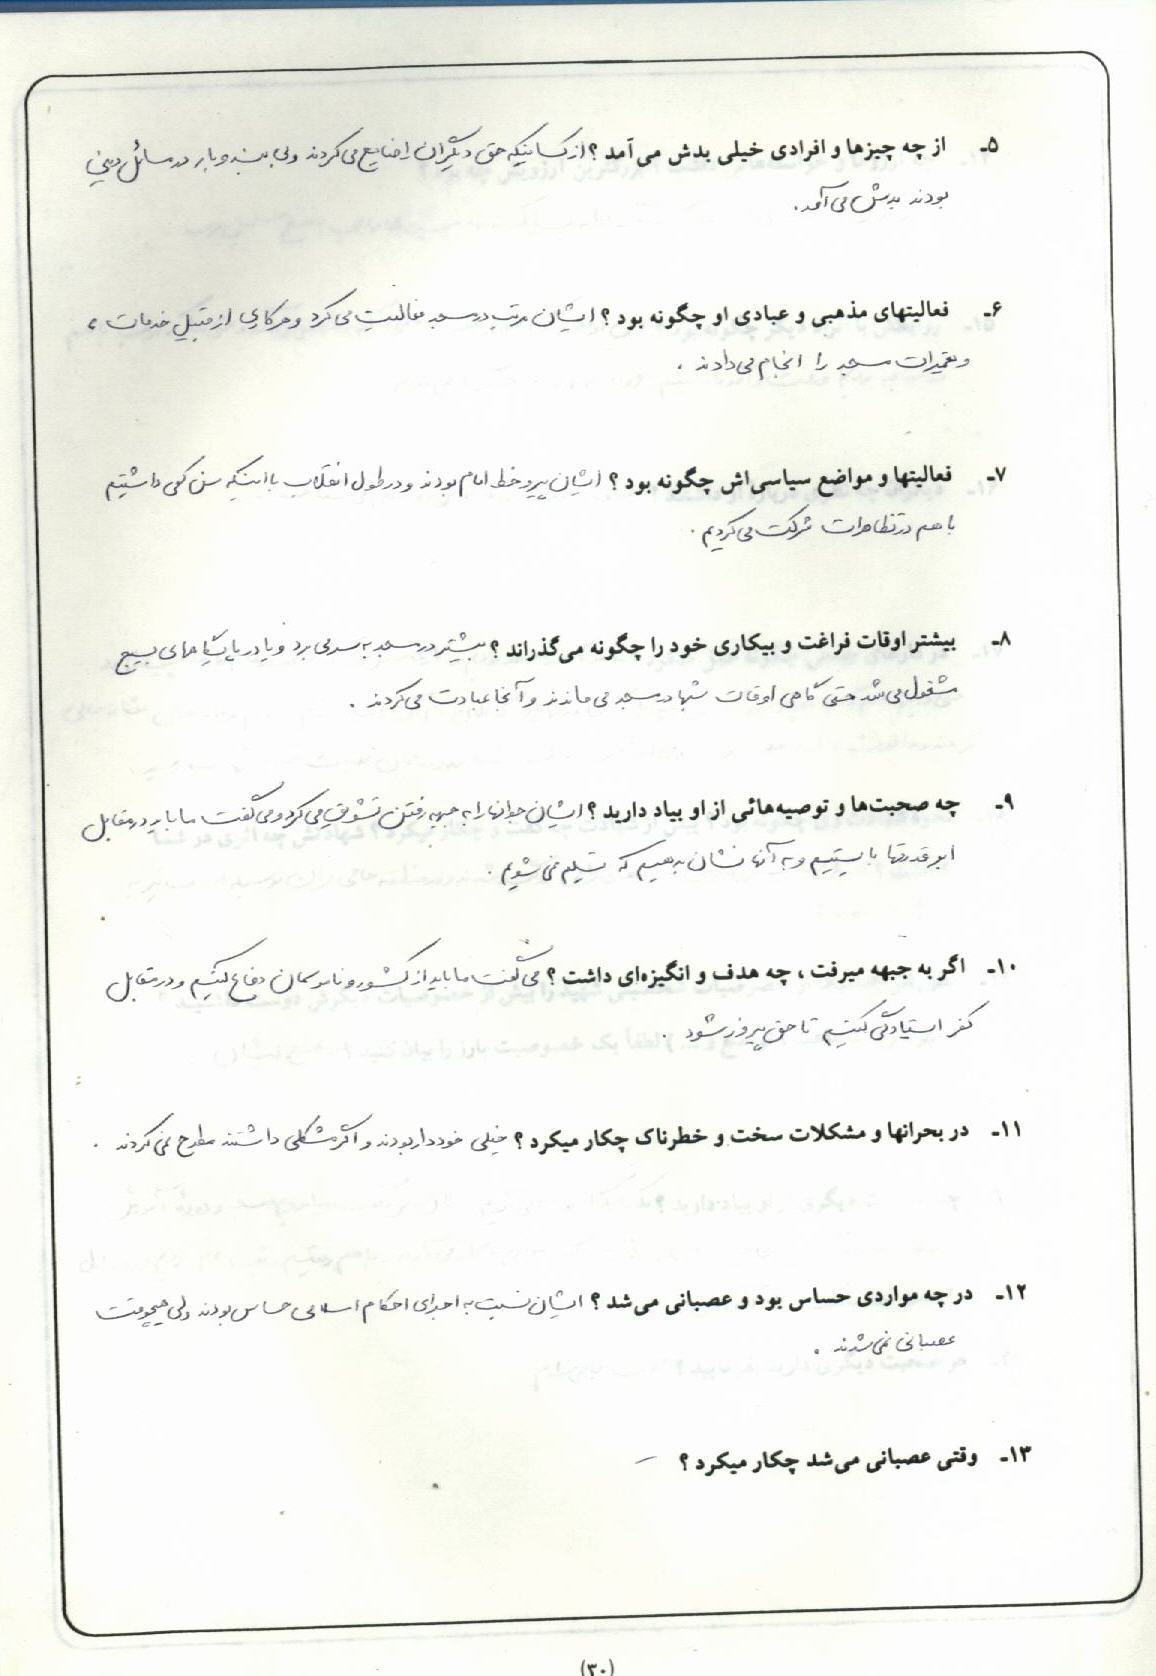 ۵ـ از چه چیزها و افرادی خیلی بدش می‌آمد ؟ از کسانیکه حق دیگران را ضایع می‌کردند و بی بند و بار در مسائل دینی
بودند بدش می‌آمد .
۶ـ فعالیتهای مذهبی و عبادی او چگونه بود ؟ ایشان مرتب در مسجد فعالیت می‌کرد و هر کاری از قبیل خدمات ،
و تعمیرات مسجد را انجام می‌دادند .
۷ـ فعالیتها و مواضع سیاسی‌اش چگونه بود ؟ ایشان پیرو خط امام بودند و در طول انقلاب با اینکه سن کمی داشتیم
با هم در تظاهرات شرکت می‌کردیم .
۸ـ بیشتر اوقات فراغت و بیکاری خود را چگونه می‌گذراند ؟ بیشتر در مسجد به سر می برد و یا در پایگاههای بسیج
مشغول می شد حتی گاهی اوقات شبها در مسجد می ماندند و آنجا عبادت می‌کردند .
۹ـ چه صحبت‌ها و توصیه‌هائی از او بیاد دارید ؟ ایشان جوانها را به جبهه رفتن تشویق می‌کرد و می‌گفت ما باید در مقابل
ابرقدرتها بایستیم و به آنها نشان بدهیم که تسلیم نمی شویم .
۱۰ـ اگر به جبهه میرفت ، چه هدف و انگیزه‌ای داشت ؟ می‌گفت ما باید از کشور و ناموسمان دفاع کنیم و در مقابل
کفر ایستادگی کنیم تا حق پیروز شود .
۱۱ـ در بحرانها و مشکلات سخت و خطرناک چکار میکرد ؟ خیلی خوددار بودند و اگر مشکلی داشتند مطرح نمی کردند .
۱۲ـ در چه مواردی حساس بود و عصبانی می‌شد ؟ ایشان نسبت به اجرای احکام اسلامی حساس بودند ولی هیچوقت
عصبانی نمی شدند .
۱۳ـ وقتی عصبانی می‌شد چکار میکرد ؟ –
(۳۰)